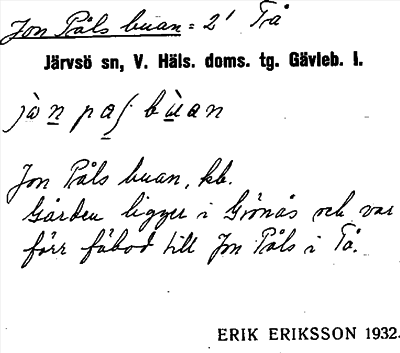 Jon Påls buan = 2' Tå
Järvsö sn, V. Häls. doms. tg. Gävleb. l.
jò̀n pa̲ʃ bùan
Jon Påls buan, kb.
Gården ligger i Grönås och var
förr fäbod till Jon Påls i Tå.
ERIK ERIKSSON 1932.